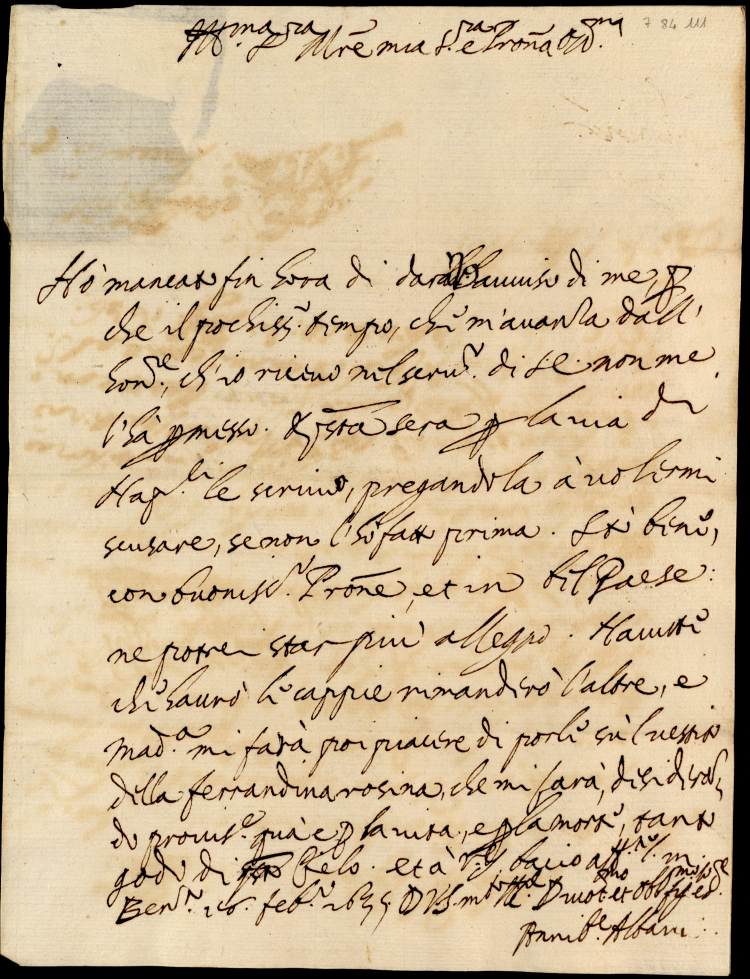 7 84 111
Ill.ma Sig.ra Mre mia S.ra e Prona Oss.ma
Hò mancato fin hora di darle avviso di me, p
che il pochiss.o tempo, che m'avanza dall'
hon.re, ch'io ricevo nel serv.o di S.E. non me
l'hà pmesso. Questa sera p la via di
Nap.li le scrivo, pregandola à volermi
scusare, se non l'hò fatto prima. Stò bene,
con buoniss.o Prone, et in bel Paese:
ne potrei star più allegro. Havute
che havrò le cappie rimanderò l'altre, e
Mad.a mi farà poi piacere di porle sù l vestito
della ferrandina rosina, che mi sarà,
do provis.e quà e p la vita, e p la morte, tanto
godo di questo Cielo. et à V.S. bacio aff.te le m
Ben.to 26. feb.o 1635 D V.S. m.to Ill. Divot.mo et Obl.mo
Annib.e Albani